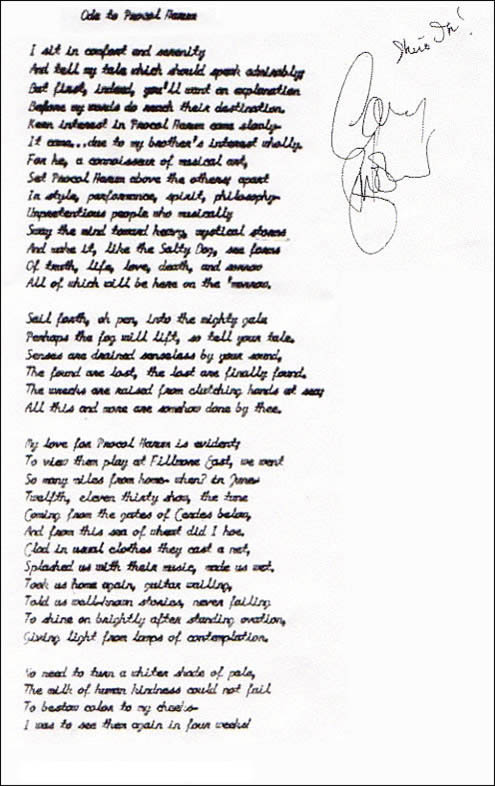 Ode to Procol Harum
Shine On!
I sit in comfort and serenity
And tell my tale which should speak admirably;
But first, indeed, you'll want an explanation
Before my words do reach their destination.
Keen interest in Procol Harum came slowly-
It came...due to my brother's interest wholly.
For he, a connoisseur of musical art,
Set Procol Harum above the others; apart
In style, performance, spirit, philosophy-
Unpretentious people who musically
Sway the mind toward heavy, mystical stones
And make it, like the Salty Dog, see forms
Of truth, life, love, death, and sorrow
All of which will be here on the 'morrow.
Sail forth, oh pen, into the mighty gale
Perhaps the fog will lift, so tell your tale.
Senses are drained senseless by your sound,
The found are lost, the lost are finally found.
The wrecks are raised from clutching hands at sea;
All this and more are somehow done by thee.
My love for Procol Harum is evident;
To view them play at Fillmore East, we went
So many miles from home- when? in June;
Twelfth, eleven thirty show, the tune
Coming from the gates of Cerdes below,
And from this sea of wheat did I hoe.
Clad in usual clothes they cast a net,
Splashed us with their music, made us wet.
Took us home again, guitar wailing,
Told us well-known stories, never failing
To shine on brightly after standing ovation,
Giving light from lamps of contemplation.
No need to turn a whiter shade of pale,
The milk of human kindness could not fail
To bestow color to my cheeks-
I was to see them again in four weeks!